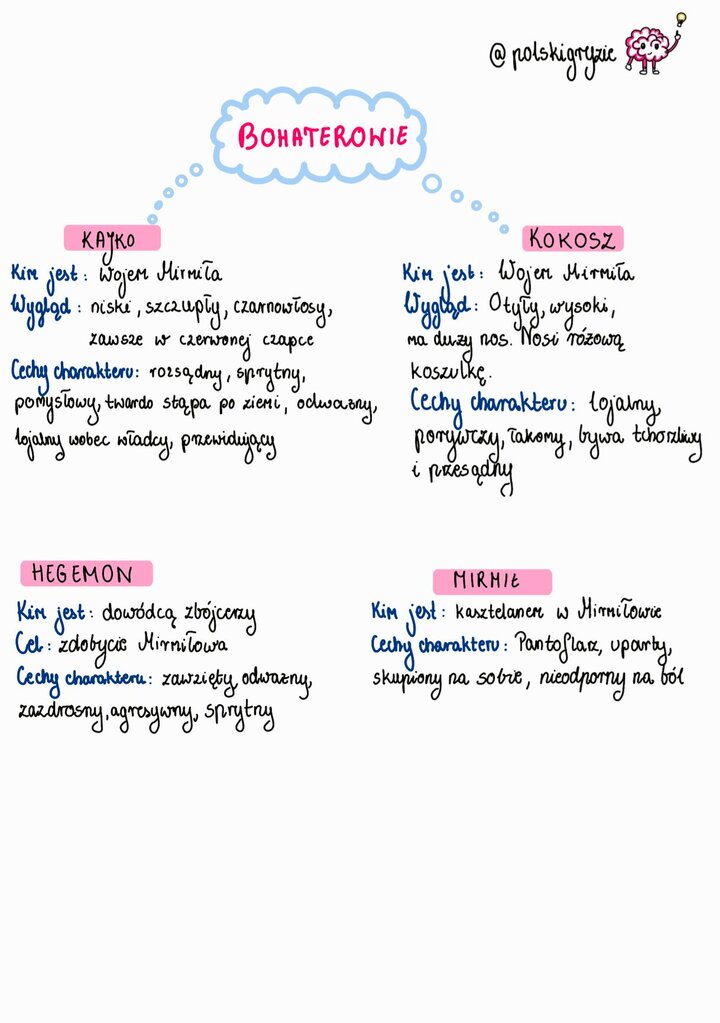 @polskigryzie
BOHATEROWIE
KAJKO
Kim jest: Wojem Mirmiła
Wygląd: niski, szczupły, czarnowłosy,
zawsze w czerwonej czapce
Cechy charakteru: rozsądny, sprytny,
pomysłowy, twardo stąpa po ziemi, odważny,
lojalny wobec władcy, przewidujący
KOKOSZ
Kim jest: Wojem Mirmiła
Wygląd: Otyły, wysoki,
ma duży nos. Nosi różową
koszulkę.
Cechy charakteru: lojalny,
porywczy, łakomy, bywa tchórzliwy
i przesądny
HEGEMON
Kim jest: dowódcą zbójcerzy
Cel: zdobycie Mirmiłowa
Cechy charakteru: zawzięty, odważny,
zazdrosny, agresywny, sprytny
MIRMIŁ
Kim jest: kasztelanem w Mirmiłowie
Cechy charakteru: Pantoflarz, uparty,
skupiony na sobie, nieodporny na ból